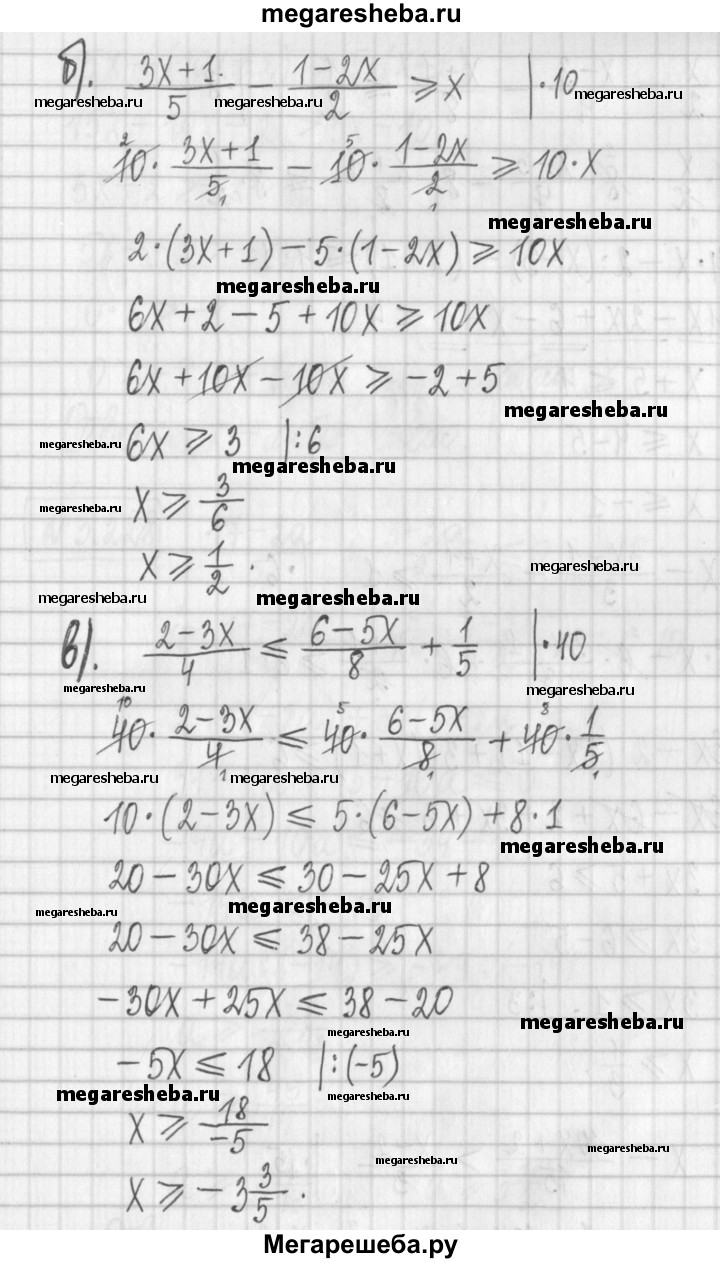 megaresheba.ru
б). (3x+1)/5 − (1−2x)/2 ⩾ x |·10
megaresheba.ru megaresheba.ru megaresheba.ru
10· (3x+1)/5 − 10· (1−2x)/2 ⩾ 10·x
megaresheba.ru
2·(3x+1)−5·(1−2x) ⩾ 10x
megaresheba.ru
6x+2−5+10x ⩾ 10x
6x+10x−10x ⩾ −2+5
megaresheba.ru
megaresheba.ru 6x ⩾ 3 |:6
megaresheba.ru
megaresheba.ru x ⩾ 3/6
x ⩾ 1/2.
megaresheba.ru
megaresheba.ru megaresheba.ru
в). (2−3x)/4 ⩽ (6−5x)/8 + 1/5 |·40
megaresheba.ru megaresheba.ru
40· (2−3x)/4 ⩽ 40· (6−5x)/8 + 40· 1/5
megaresheba.ru megaresheba.ru
10·(2−3x) ⩽ 5·(6−5x)+8·1
megaresheba.ru
20−30x ⩽ 30−25x+8
megaresheba.ru megaresheba.ru
20−30x ⩽ 38−25x
−30x+25x ⩽ 38−20
megaresheba.ru
megaresheba.ru
−5x ⩽ 18 |:(−5)
megaresheba.ru megaresheba.ru
x ⩾ 18/−5
megaresheba.ru
megaresheba.ru
x ⩾ −3 3/5.
Мегарешеба.ру